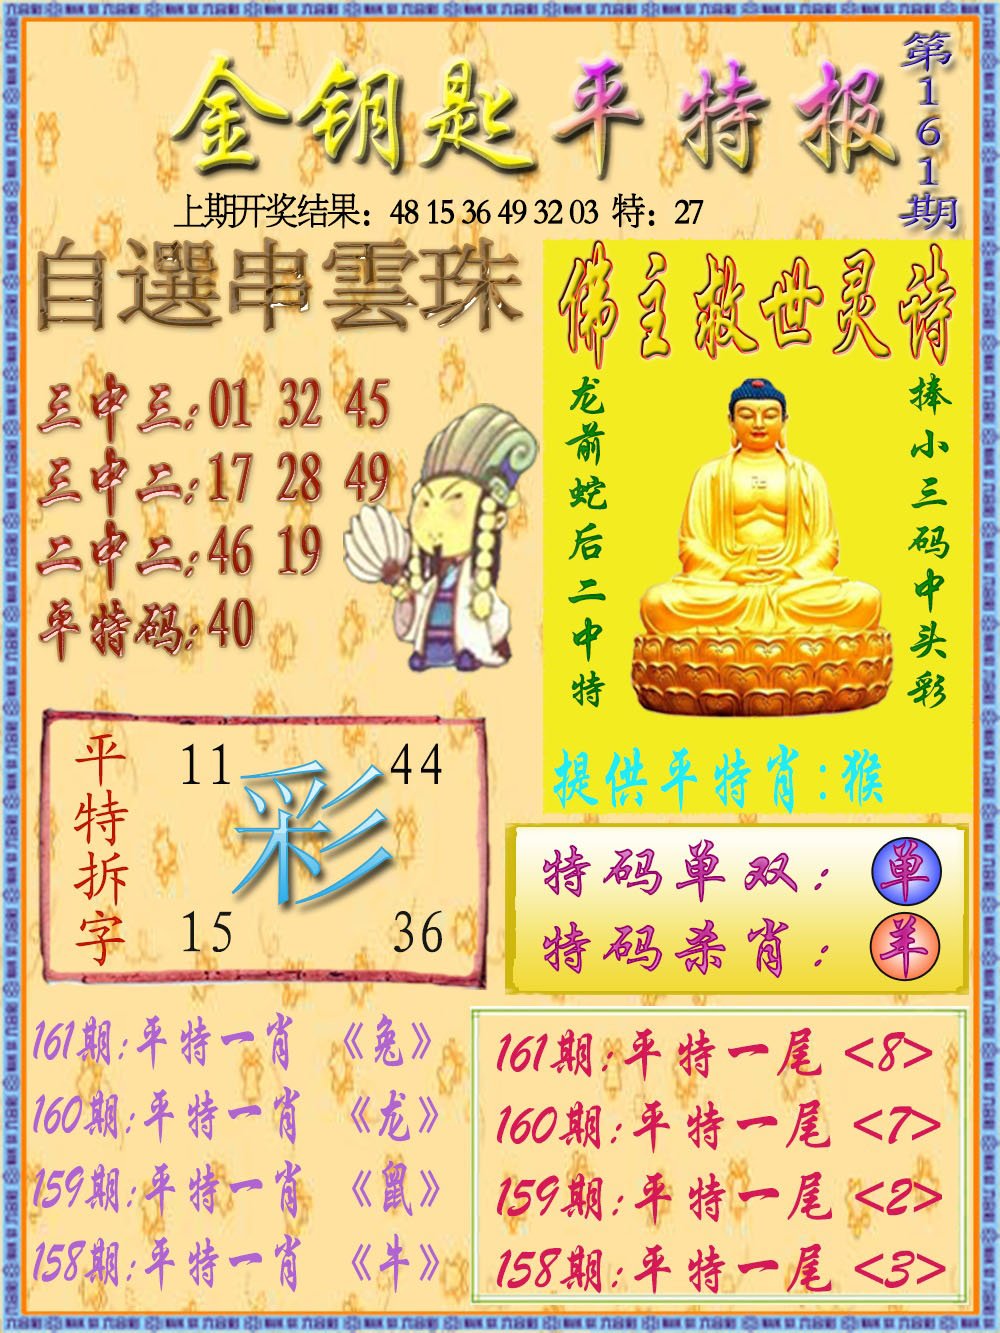 金钥匙平特报
第161期
上期开奖结果：48 15 36 49 32 03 特：27
自選串雲珠
三中三:01 32 45
三中二:17 28 49
二中二:46 19
平特码:40
佛主救世灵诗
捧小三码中头彩
龙前蛇后二中特
提供平特肖:猴
平特拆字
11 44
彩
15 36
特码单双：单
特码杀肖：羊
161期:平特一肖《兔》
160期:平特一肖《龙》
159期:平特一肖《鼠》
158期:平特一肖《牛》
161期:平特一尾<8>
160期:平特一尾<7>
159期:平特一尾<2>
158期:平特一尾<3>